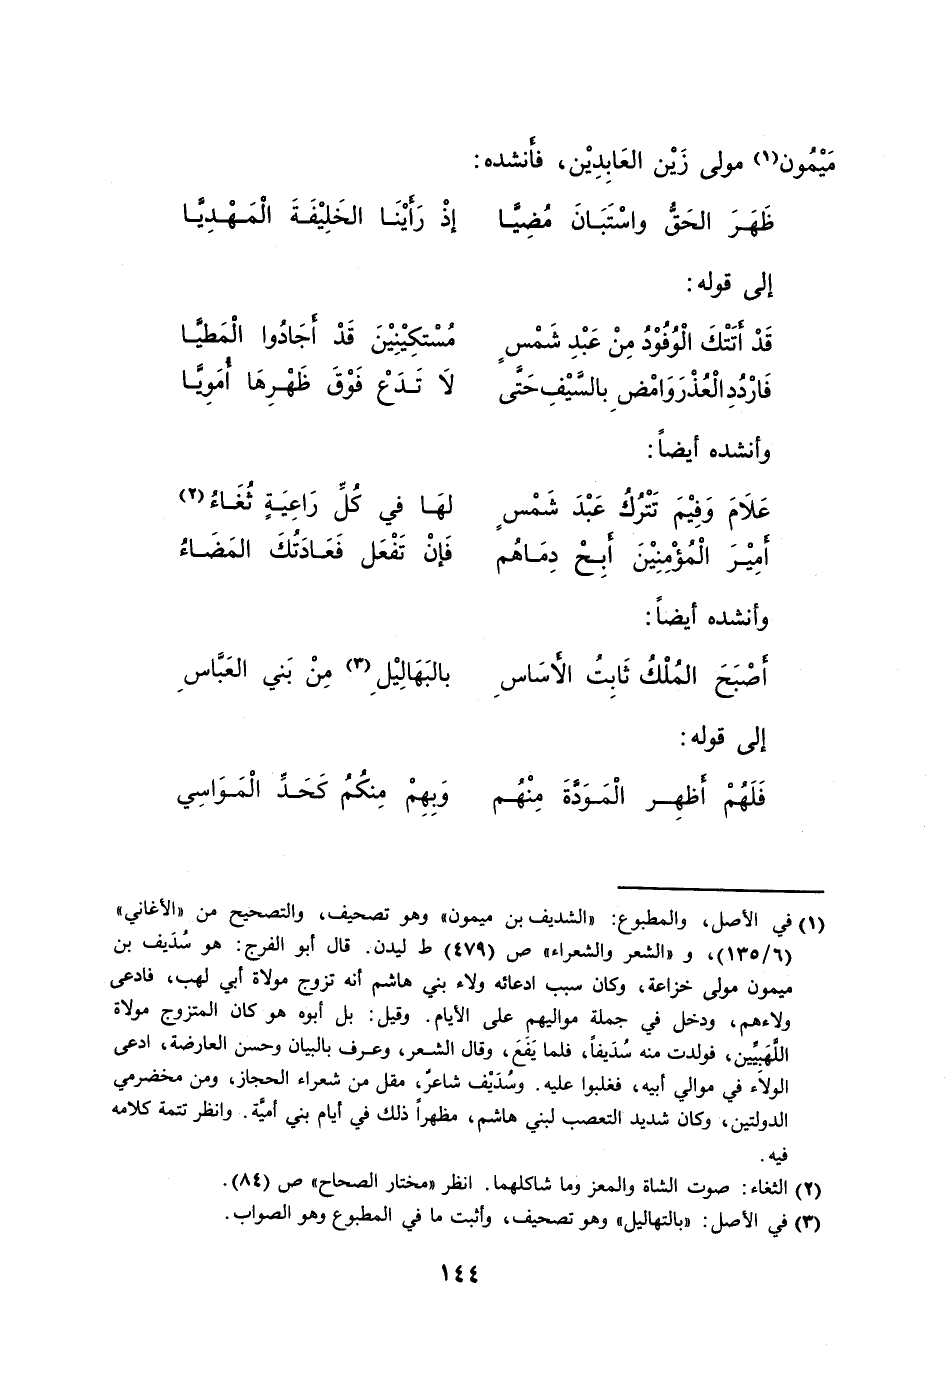 مَيْمُون(١) مولى زَيْن العَابِدِيْن، فأنشده:
ظَهَرَ الحَقُّ واسْتَبَانَ مُضِيَّا إذْ رَأَيْنَا الخَلِيْفَةَ الْمَهْدِيَّا
إلى قوله:
قَدْ أَتَتْكَ الْوُفُوْدُ مِنْ عَبْدِ شَمْسٍ مُسْتكِيْنِيْنَ قَدْ أَجَادُوا الْمَطيَّا
فَارْدُدِ الْعُذْرَ وَامْضِ بالسَّيْفِ حَتَّى لَا تَدَعْ فَوْقَ ظَهْرِهَا أُمَوِيَّا
وأنشده أيضاً:
عَلَامَ وَفِيْمَ تَتْرُكُ عَبْدَ شَمْسٍ لهَا في كُلِّ رَاعِيَةٍ ثُغَاءُ(٢)
أَمِيْرَ الْمُؤْمِنِيْنَ أَبِحْ دِمَاهُم فَإنْ تَفْعَل فَعَادَتُكَ المَضَاءُ
وأنشده أيضاً:
أَصْبَحَ المُلْكُ ثَابِتُ الأَسَاسِ بالبَهَالِيْلِ(٣) مِنْ بَني العَبَّاسِ
إلى قوله:
فَلَهُمْ أَظهِر الْمَوَدَّةَ مِنْهُم وَبِهِمْ مِنكُمُ كَحَدِّ الْمَوَاسِي
(١) في الأصل، والمطبوع: «الشديف بن ميمون» وهو تصحيف، والتصحيح من «الأغاني»
(١٣٥/٦)، و «الشعر والشعراء» ص (٤٧٩) ط ليدن. قال أبو الفرج: هو سُدَيف بن
ميمون مولى خزاعة، وكان سبب ادعائه ولاء بني هاشم أنه تزوج مولاة أبي لهب، فادعى
ولاءهم، ودخل في جملة مواليهم على الأيام. وقيل: بل أبوه هو كان المتزوج مولاة
اللَّهَبِيِّين، فولدت منه سُدَيفاً، فلما يَفَعَ، وقال الشعر، وعرف بالبيان وحسن العارضة، ادعى
الولاء في موالي أبيه، فغلبوا عليه. وسُدَيْف شاعرٌ، مقل من شعراء الحجاز، ومن مخضرمي
الدولتين، وكان شديد التعصب لبني هاشم، مظهراً ذلك في أيام بني أميَّة. وانظر تتمة كلامه
فيه.
(٢) الثغاء: صوت الشاة والمعز وما شاكلهما. انظر «مختار الصحاح» ص (٨٤).
(٣) في الأصل: «بالتهاليل» وهو تصحيف، وأثبت ما في المطبوع وهو الصواب.
١٤٤